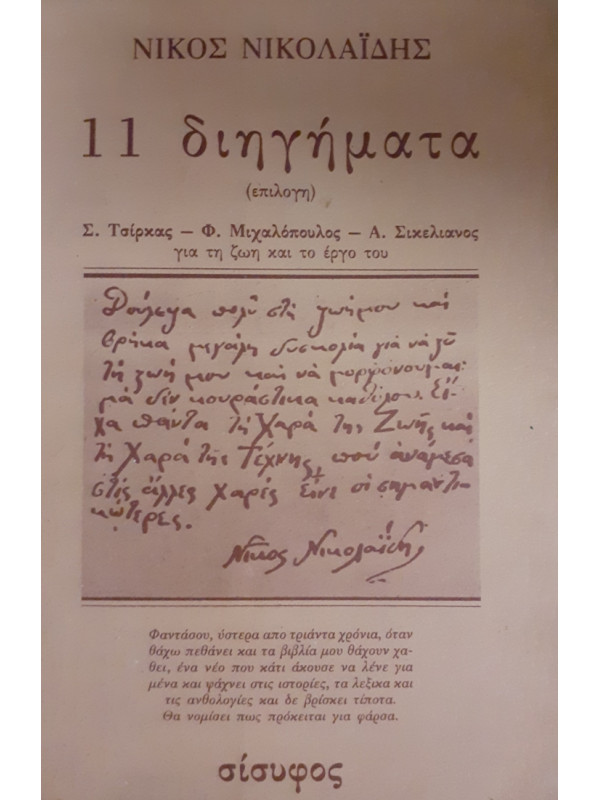 ΝΙΚΟΣ ΝΙΚΟΛΑΪΔΗΣ
11 διηγήματα
(επιλογη)
Σ. Τσίρκας – Φ. Μιχαλόπουλος – Α. Σικελιανος
για τη ζωη και το έργο του
Δούλεψα πολὺ στὴ ζωή μου καὶ
βρῆκα μεγάλη δυσκολία γιὰ νὰ ζῶ
τὴ ζωή μου καὶ νὰ μορφώνουμαι·
μὰ δὲν κουράστικα καθόλου. Εἶ-
χα πάντα τὴ Χαρὰ τῆς Ζωῆς καὶ
τὴ Χαρὰ τῆς Τέχνης, ποὺ ἀνάμεσα
στὶς ἄλλες χαρές εἶνε οἱ σημαντι-
κώτερες.
Νῖκος Νικολαΐδης
Φαντάσου, ύστερα απο τριάντα χρόνια, όταν
θάχω πεθάνει και τα βιβλία μου θάχουν χα-
θει, ένα νέο που κάτι άκουσε να λένε για
μένα και ψάχνει στις ιστορίες, τα λεξικα και
τις ανθολογίες και δε βρίσκει τίποτα.
Θα νομίσει πως πρόκειται για φάρσα.
σίσυφος